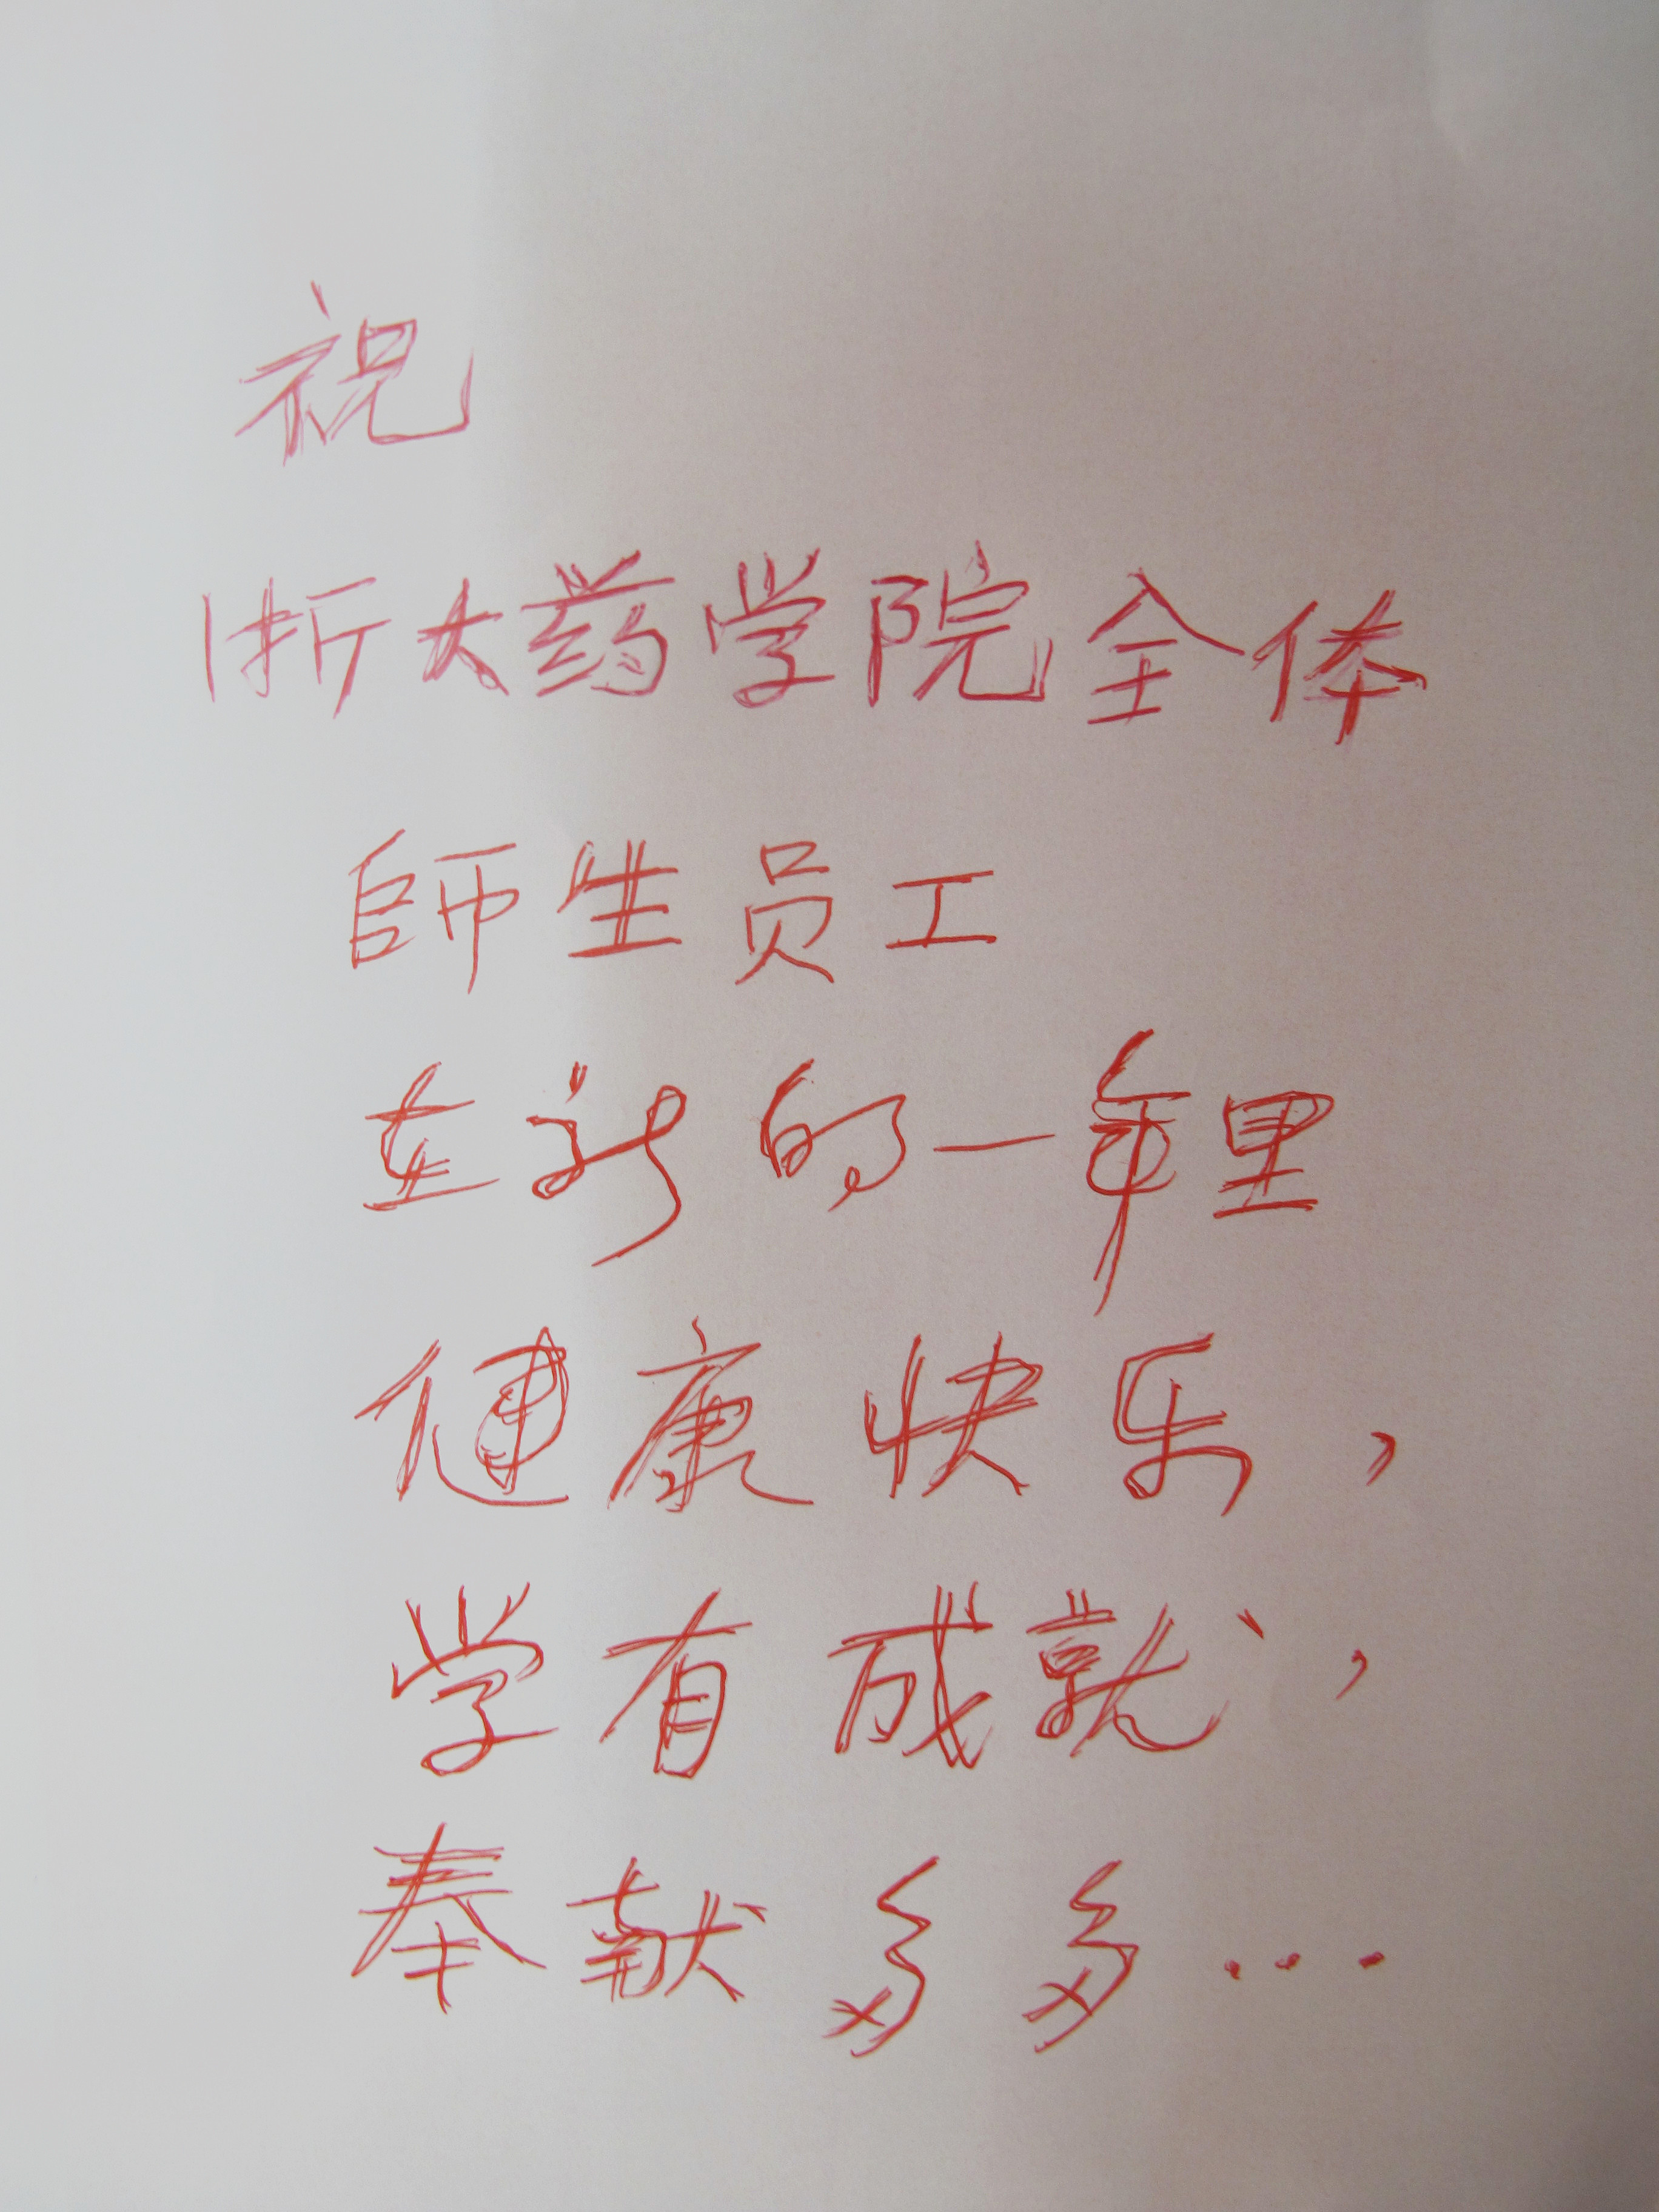 祝
浙大药学院全体
師生员工
在新的一年里
健康快乐，
学有成就，
奉献多多...